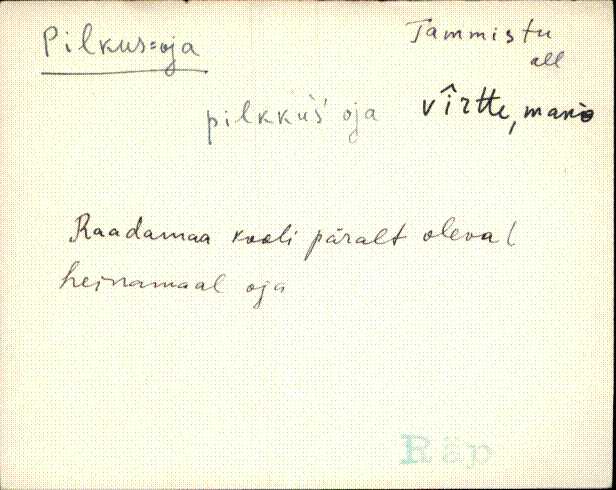 Pilkus=oja
Tammistu
all
pilkkùś oja
vîrtte, mario
Raadamaa kooli päralt oleval
heinamaal oja
Räp